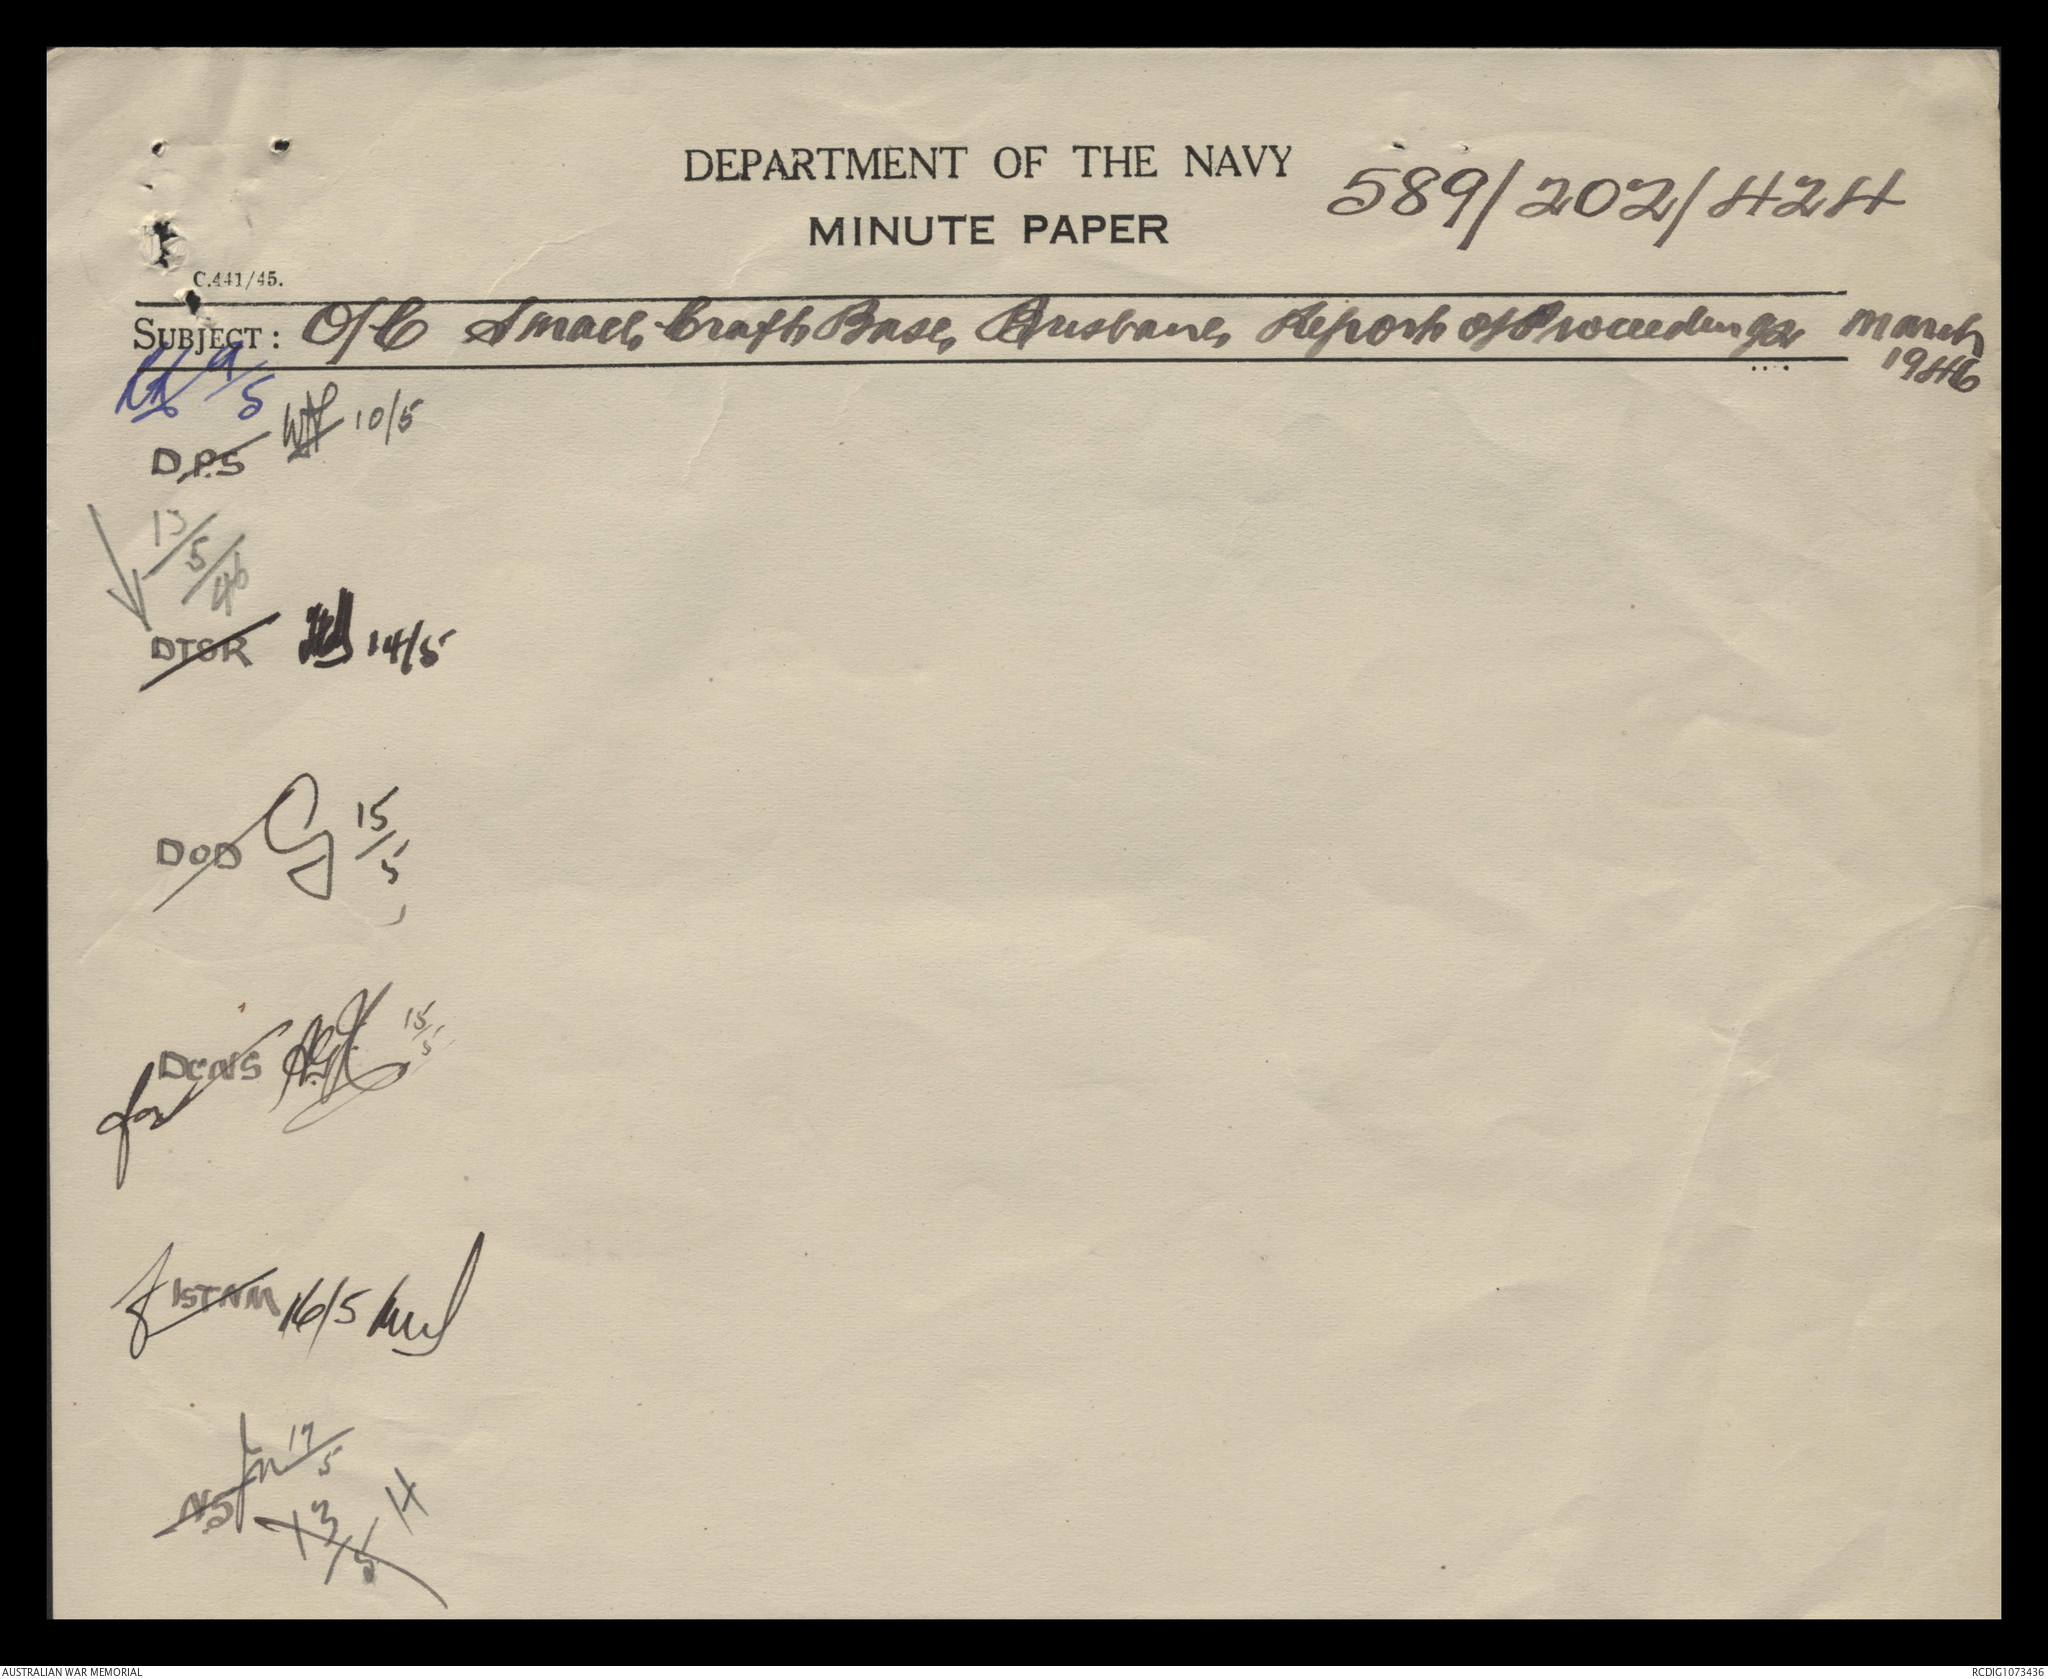 DEPARTMENT OF THE NAVY
MINUTE PAPER
589/202/424
C.441/45.
SUBJECT: O/C Small Craft Base, Brisbane, Report of Proceedings March
1946
9/5
DPS 10/5
13/5/46
DTSR 14/5
DOD 15/5
DCNS 15/5
for
1STNM 16/5
NS 17/5
AUSTRALIAN WAR MEMORIAL
RCDIG1073436